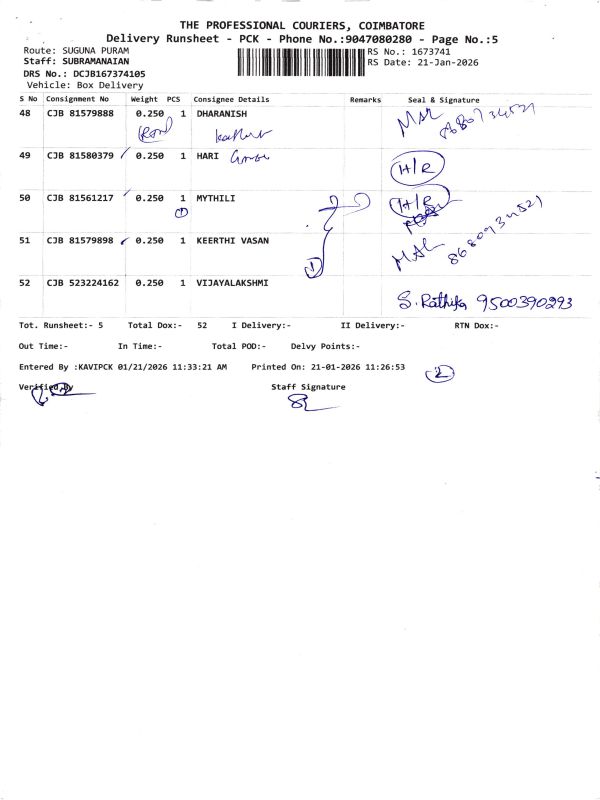 THE PROFESSIONAL COURIERS, COIMBATORE
Delivery Runsheet - PCK - Phone No.:9047080280 - Page No.:5
Route: SUGUNA PURAM
Staff: SUBRAMANAIAN
DRS No.: DCJB167374105
Vehicle: Box Delivery
RS No.: 1673741
RS Date: 21-Jan-2026
S No Consignment No Weight PCS Consignee Details Remarks Seal & Signature
48 CJB 81579888 0.250 1 DHARANISH
49 CJB 81580379 0.250 1 HARI H/R
50 CJB 81561217 0.250 1 MYTHILI H/R
1
51 CJB 79898 0.250 1 KEERTHI VASAN
1
52 CJB 523224162 0.250 1 VIJAYALAKSHMI
S. Rathika 9500390293
Tot. Runsheet:- 5 Total Dox:- 52 I Delivery:- II Delivery:- RTN Dox:-
Out Time:- In Time:- Total POD:- Delvy Points:-
Entered By :KAVIPCK 01/21/2026 11:33:21 AM Printed On: 21-01-2026 11:26:53
2
Verified By Staff Signature